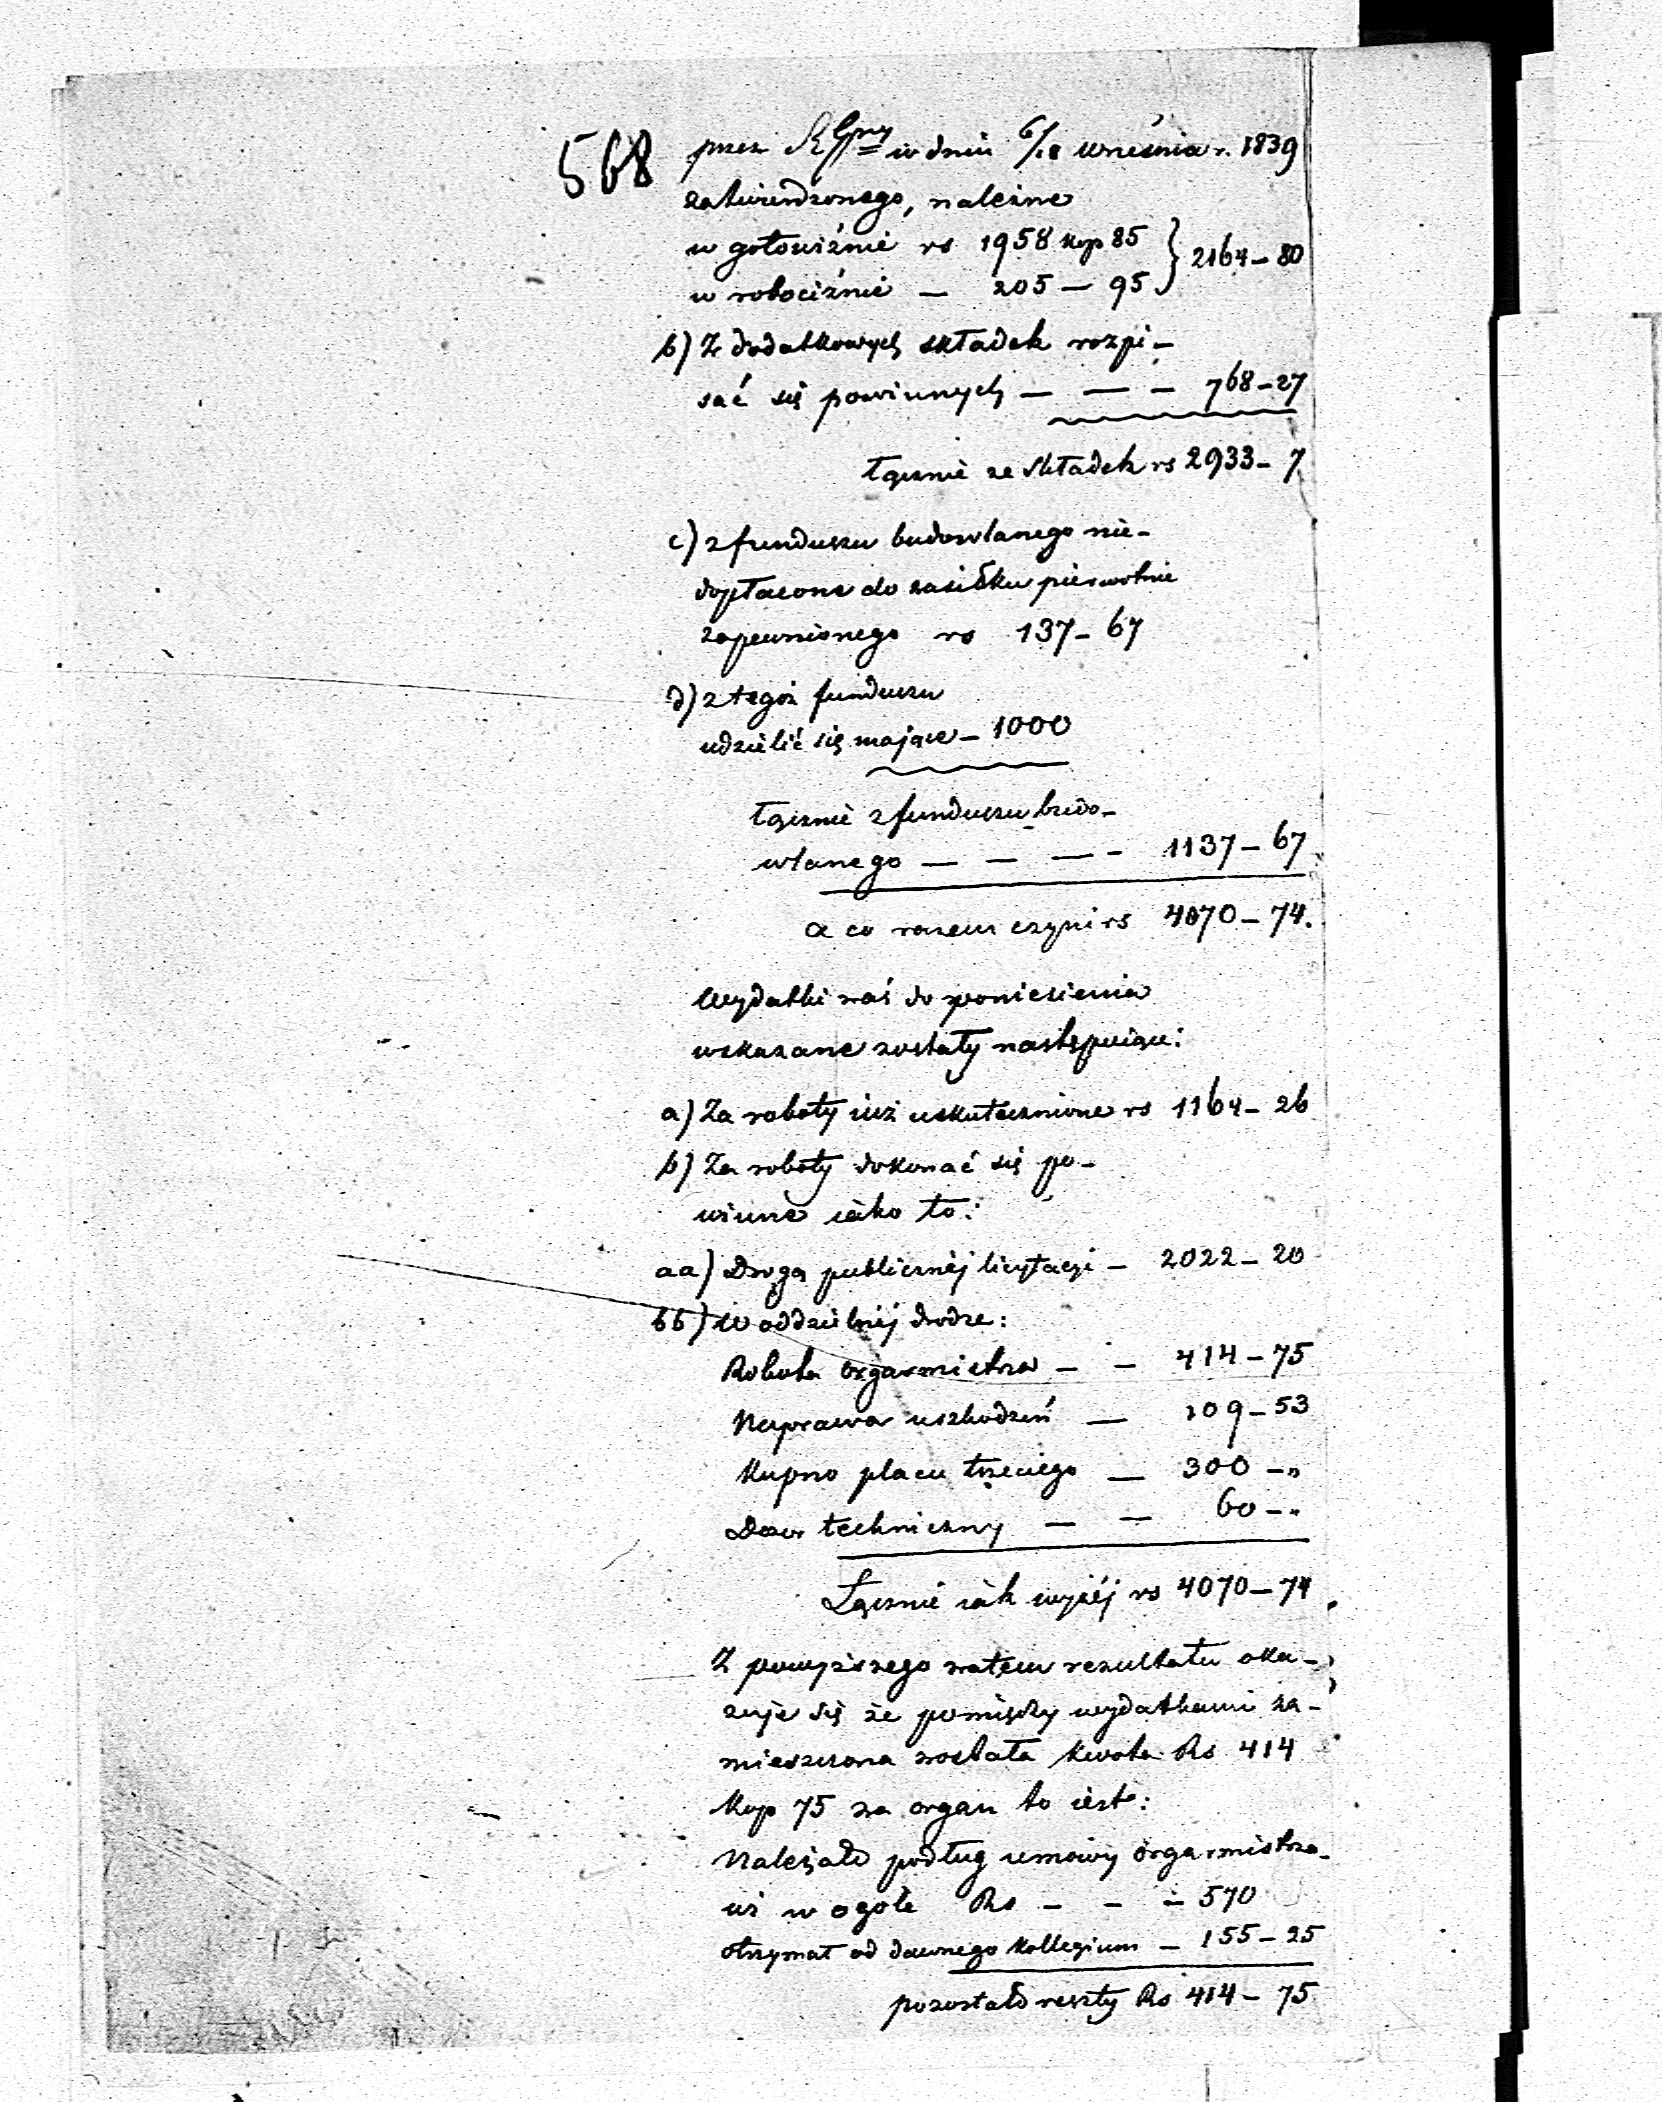 568
przez Rz Gny w dniu 6/18 września r. 1839
zatwierdzonego, należne
w gotowiźnie rs 1958 kop 85 } 2164 – 80
w robociźnie — 205 — 95
b) Z dodatkowych składek rozpi–
sać się powinnych — — – 768 – 27
Łącznie ze składek rs 2933 – 7
c) z funduszu budowlanego nie–
dopłacone do zasiłku pierwotnie
zapewnionego rs 137 – 67
d) z tegoż funduszu
udzielić się mające – 1000
Łącznie z funduszu budo–
wlanego — — — – 1137 – 67
a co razem czyni rs 4070 – 74.
Wydatki zaś do poniesienia
wskazane zostały następuiące:
a) Za roboty iuż uskutecznione rs 1164 – 26
b) Za roboty dokonać się po–
winne iako to:
aa) Drogą publicznéj licytacyi – 2022 – 20
bb) W oddzielnéj drodze:
Robota orgarmistrza – – 414 – 75
Naprawa uszkodzeń — 109 – 53
Kupno placu trzeciego — 300 – „
Dozór techniczny — — 60 – „
Łącznie iak wyżéj rs 4070 – 74
Z powyższego zatem rezultatu oka–
zuje się że pomiędzy wydatkami za–
mieszczona została kwota Rs 414
Kop 75 za organ to iest:
Należało podług umowy orgarmistrzo–
wi w ogóle Rs – – – 570
otrzymał od dawnego Kollegium – 155 – 25
pozostało reszty Rs 414 – 75